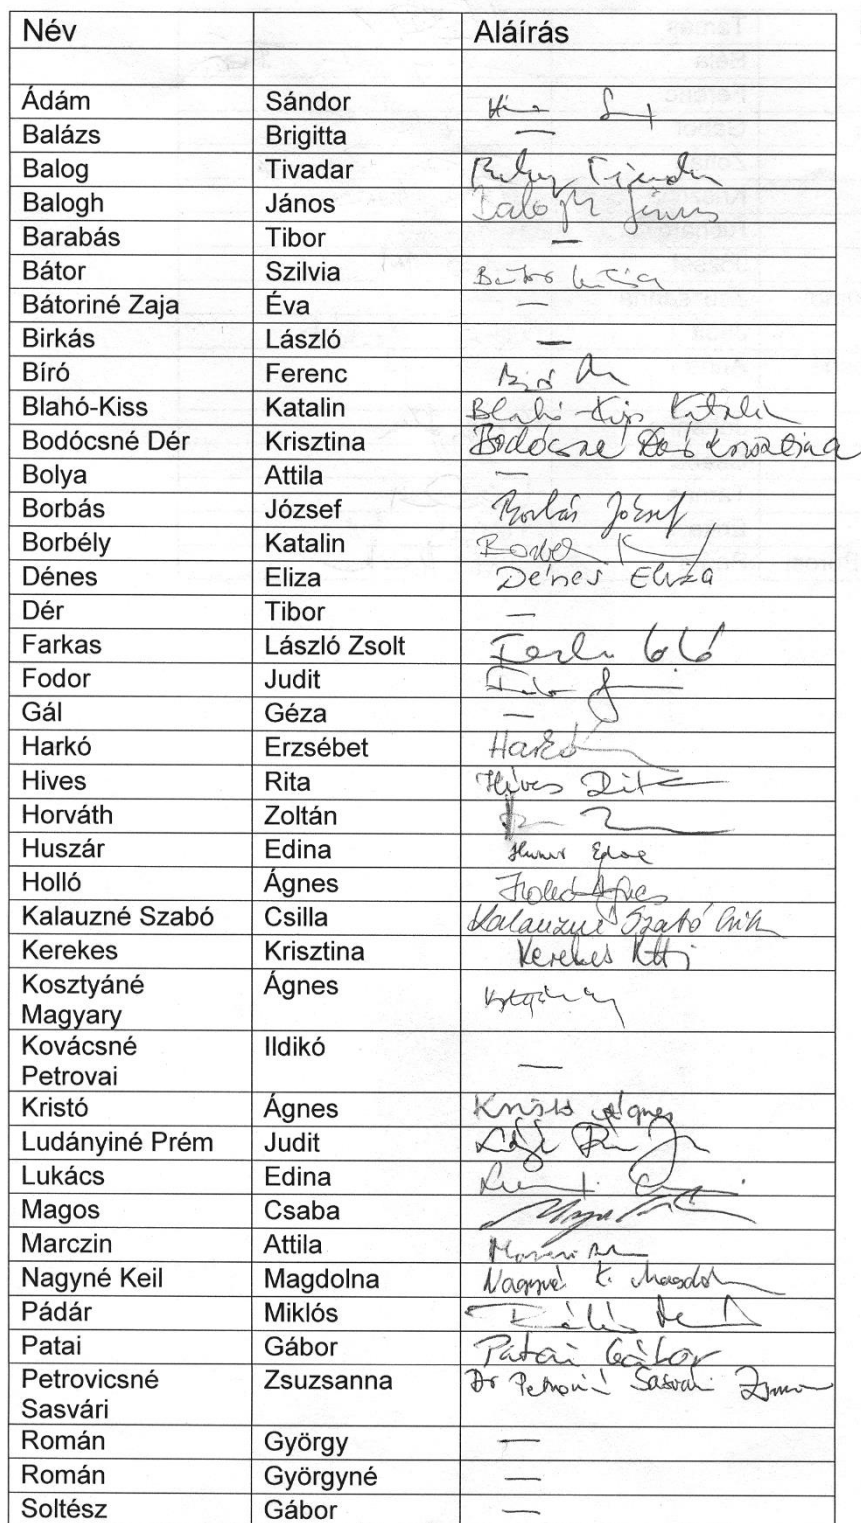 Név Aláírás
Ádám Sándor
Balázs Brigitta —
Balog Tivadar Balog Tivadar
Balogh János Balogh János
Barabás Tibor —
Bátor Szilvia Bátor
Bátoriné Zaja Éva
Birkás László —
Bíró Ferenc Bíró
Blahó-Kiss Katalin Blahó-Kiss Katalin
Bodócsné Dér Krisztina Bodócsné Dér Krisztina
Bolya Attila —
Borbás József Borbás József
Borbély Katalin
Dénes Eliza Dénes Eliza
Dér Tibor —
Farkas László Zsolt
Fodor Judit
Gál Géza —
Harkó Erzsébet Harkó
Hives Rita Hives Rita
Horváth Zoltán
Huszár Edina
Holló Ágnes Holló Ágnes
Kalauzné Szabó Csilla Kalauzné Szabó Csilla
Kerekes Krisztina Kerekes Kitti
Kosztyáné Ágnes
Magyary
Kovácsné Ildikó
Petrovai —
Kristó Ágnes Kristó Ágnes
Ludányiné Prém Judit
Lukács Edina
Magos Csaba
Marczin Attila
Nagyné Keil Magdolna Nagyné K. Magdol
Pádár Miklós
Patai Gábor Patai Gábor
Petrovicsné Zsuzsanna Dr Petrovics Sasvári
Sasvári
Román György —
Román Györgyné —
Soltész Gábor —